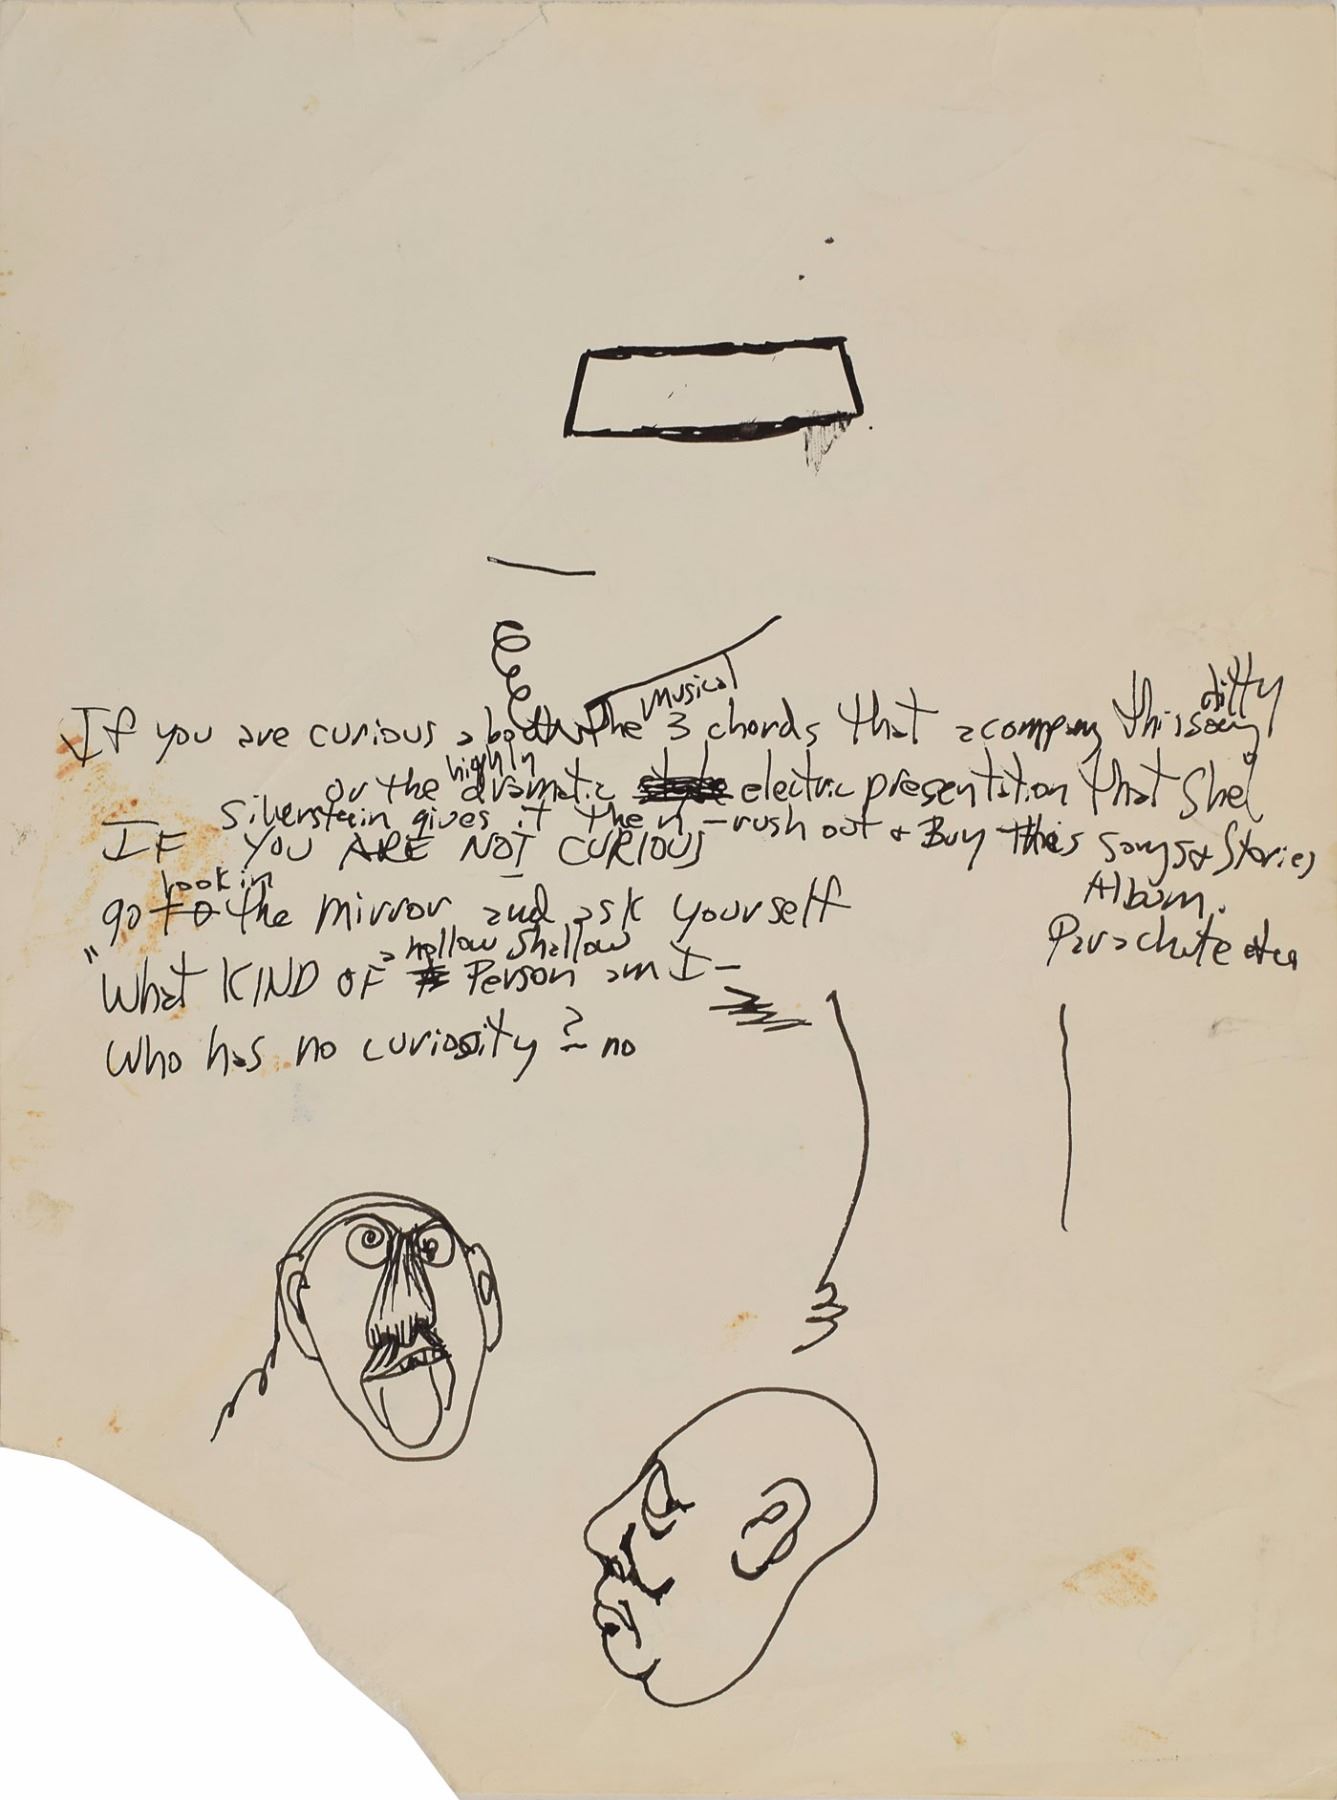 If you are curious about the 3 musical chords that acompany this song ditty
or the highly dramatic electric presentation that Shel
Silverstein gives it then - rush out & Buy this songs & Stories
Album.
Parachute
IF YOU ARE NOT CURIOUS
go to look in the mirror and ask yourself
"What KIND OF a hollow shallow Person am I -
Who has no curiosity ? - no